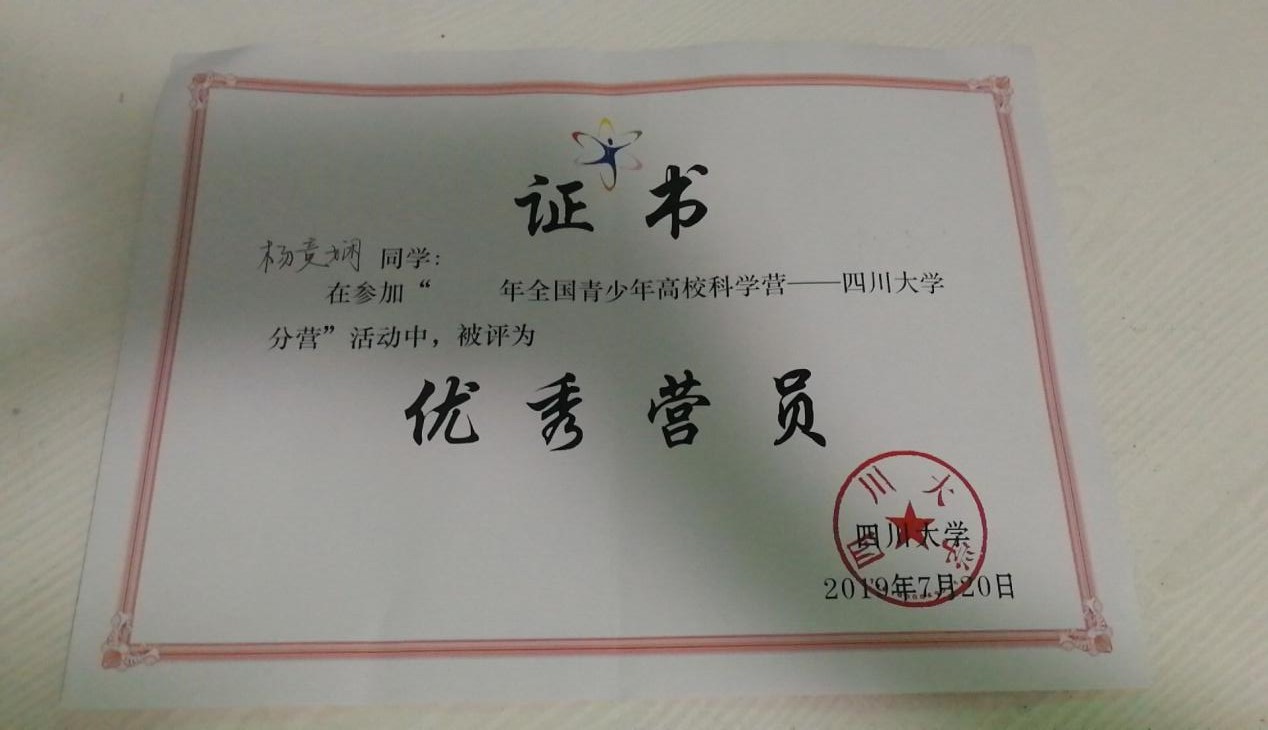 证书
杨竞娴 同学：
在参加“ 年全国青少年高校科学营——四川大学
分营”活动中，被评为
优秀营员
四川大学
四川大学
2019年7月20日